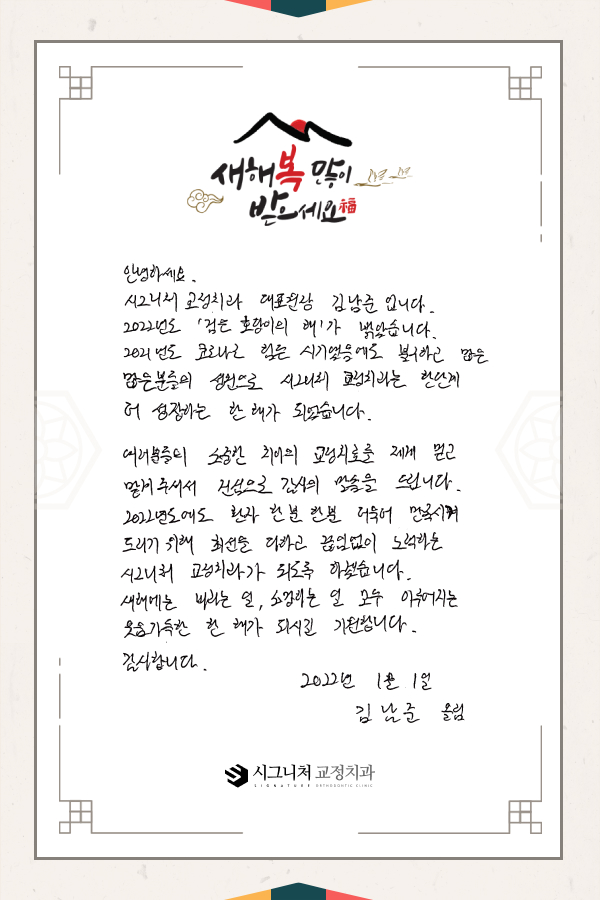 새해 복 많이
받으세요 福
안녕하세요.
시그니처 교정치과 대표원장 김남준 입니다.
2022년도 '검은 호랑이의 해'가 밝았습니다.
2021년도 코로나로 힘든 시기였음에도 불구하고 많은
많은분들의 성원으로 시그니처 교정치과는 한단계
더 성장하는 한 해가 되었습니다.
여러분들의 소중한 치아의 교정치료를 제게 믿고
맡겨주셔서 진심으로 감사의 말씀을 드립니다.
2022년도에도 환자 한분 한분 더욱더 만족시켜
드리기 위해 최선을 다하고 끊임없이 노력하는
시그니처 교정치과가 되도록 하겠습니다.
새해에는 바라는 일, 소망하는 일 모두 이루어지는
웃음가득한 한 해가 되시길 기원합니다.
감사합니다.
2022년 1월 1일
김남준 올림
시그니처 교정치과
SIGNATURE ORTHODONTIC CLINIC